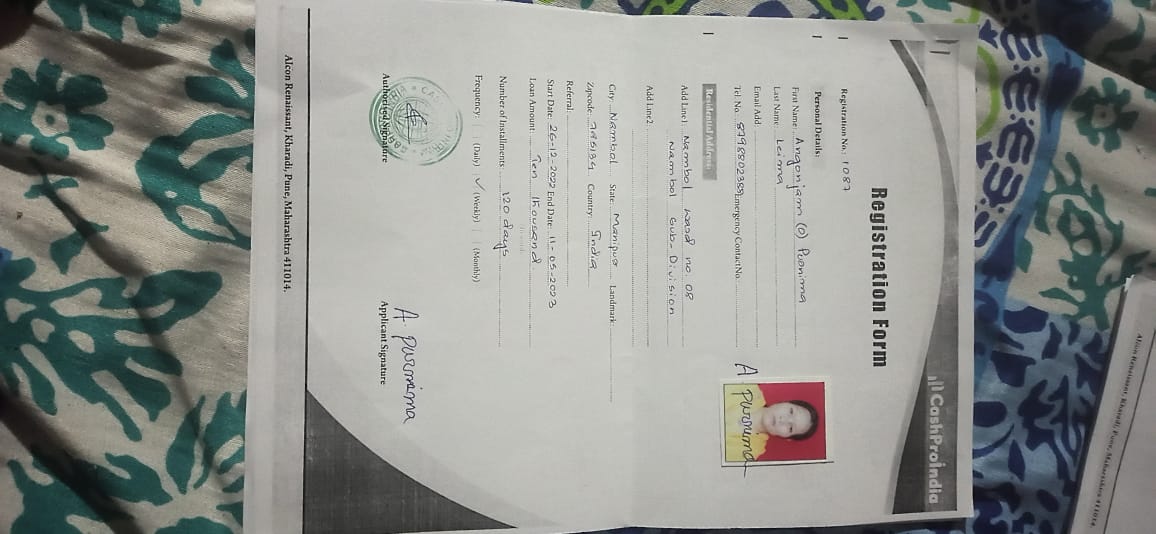 CashProIndia
Registration Form
Registration No.: 1087
Personal Details:
First Name: Angonjam (O) Poonima
Last Name: Leima
Email Add:
Tel. No. Emergency Contact No.
A Purnima
Residential Address:
Add Line1 Nambol Ward no. 08
Nambol Sub-Division
Add Line2
City: Nambol State: Manipur Landmark:
Zipcode: 795134 Country: India
Referral:
Start Date: 26-12-2022 End Date: 11-05-2023
Loan Amount: Ten Thousand
Number of Installments: 120 days
Frequency: (Daily) ✓ (Weekly) (Monthly)
A. Purnima
Authorised Signature Applicant Signature
Alcon Renaissant, Kharadi, Pune, Maharashtra 411014.
Alcon Renaissant, Kharadi, Pune, Maharashtra 411014.